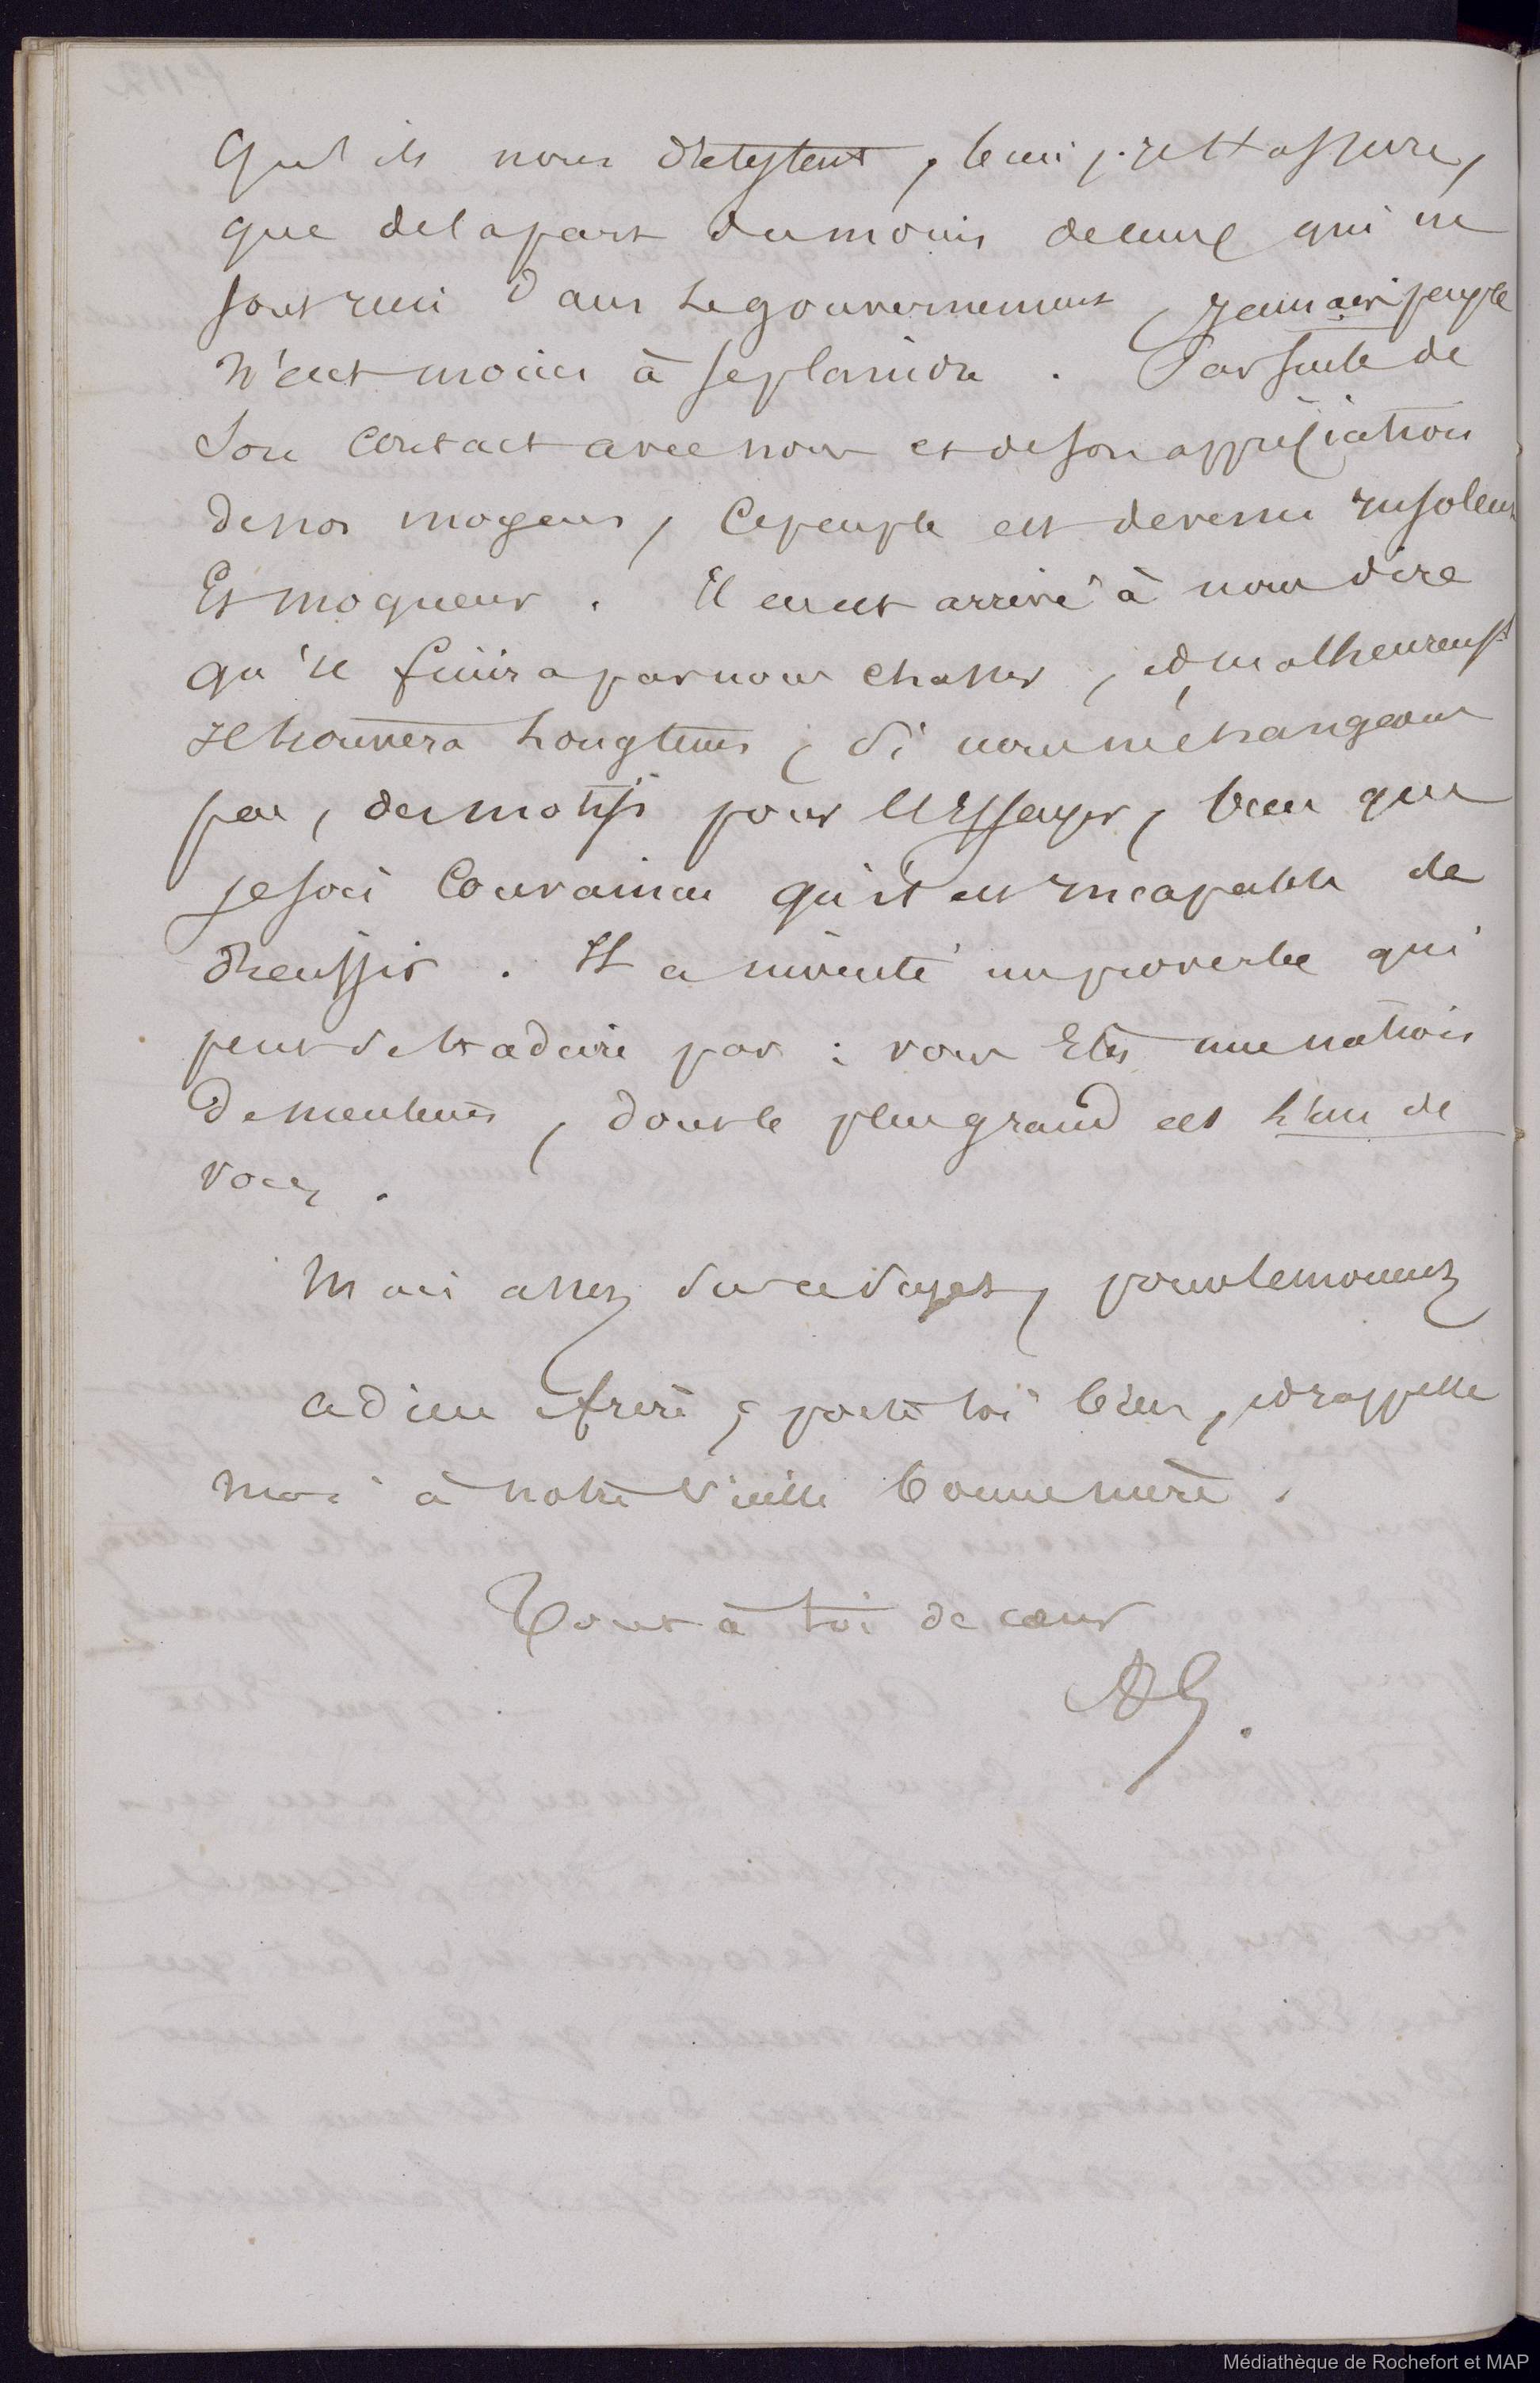 Qu'ils nous détestent, bien, je t'assure,
que de la part du moins de ceux qui ne
sont rien dans le gouvernement, jamais peuple
n'eut moins à se plaindre. Par suite de
son contact avec nous et de son appréciation
de nos moyens, ce peuple est devenu insolent
Et moqueur. Il en est arrivé à nous dire
qu'il finira par nous chasser, et malheureust
il trouvera longtems, si nous ne changeons
pas, des motifs pour l'Essayer, bien que
je sois Convaincu qu'il est incapable de
réussir. Il a inventé un proverbe qui
peut se traduire par : vous Etes une nation
de menteurs, dont le plus grand est l'un de
vous.
Mais assez sur ce sujet, pour le moment
adieu frère, porte toi bien, et rappelle
moi à notre vieille bonne mère.
Tout à toi de cœur
Médiathèque de Rochefort et MAP